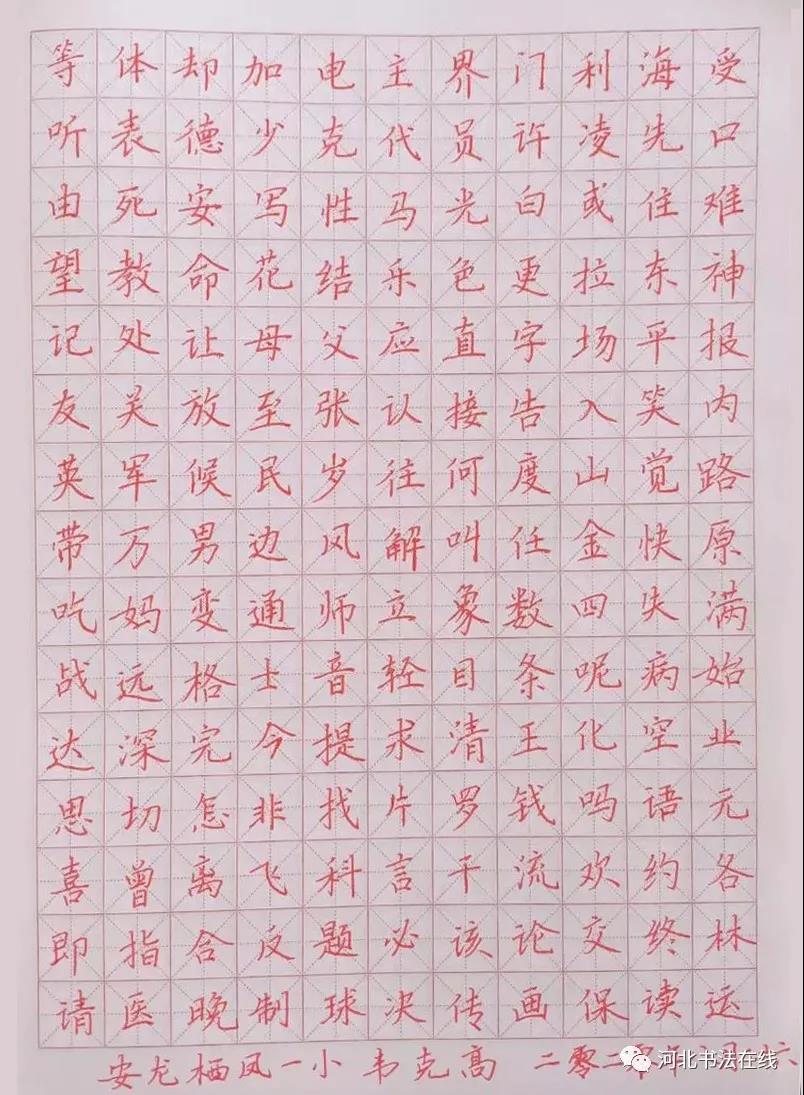 等体却加电主界门利海受
听表德少克代员许凌先口
由死安写性马光白或住难
望教命花结乐色更拉东神
记处让母父应直字场平报
友关放至张认接告入笑内
英军候民岁往何度山觉路
带万男边风解叫任金快原
吃妈变通师立象数四失满
战远格士音轻目条呢病始
达深完今提求清王化空业
思切怎非找片罗钱吗语元
喜曾离飞科言干流欢约各
即指合反题必该论交终林
请医晚制球决传画保读运
安龙栖凤一小 韦克高 二零二
河北书法在线